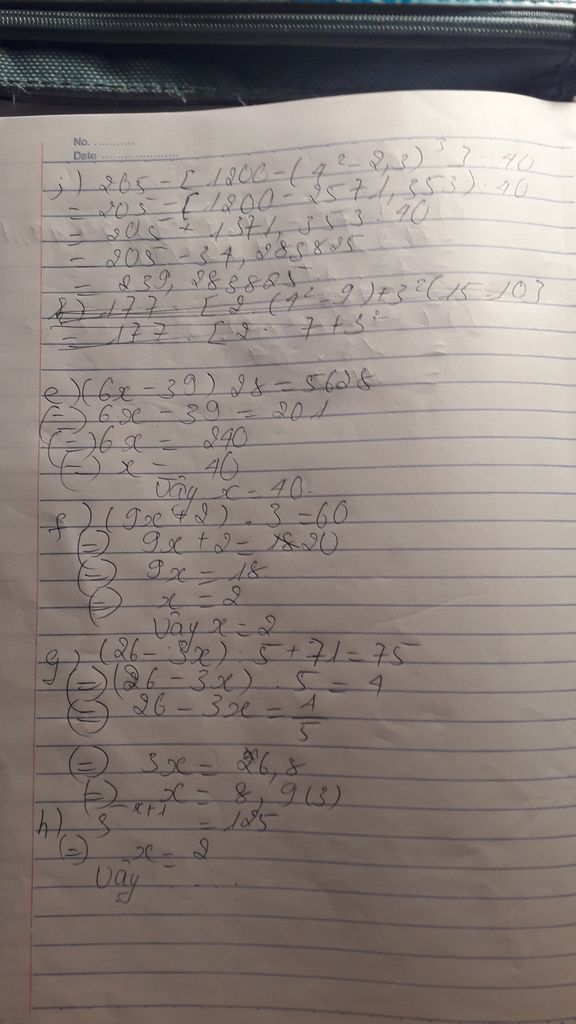 No. ............
Date ......................
j) 205 - [1200 - (4² - 2,3)³] : 40
= 205 - [1200 - 2571,353) : 40
= 205 + 1371,353 : 40
= 205 - 34,283825
= 239,283825
k) 177 : [2 . (4² - 9) + 3² (15 - 10]
= 177 : [2 . 7 + 3²
e) (6x - 39) 28 = 5628
(=) 6x - 39 = 201
(=) 6x = 240
(=) x = 40
Vậy x = 40.
f) (9x + 2) . 3 = 60
(=) 9x + 2 = 20
(=) 9x = 18
(=) x = 2
Vậy x = 2
g) (26 - 3x) . 5 + 71 = 75
(=) (26 - 3x) . 5 = 4
(=) 26 - 3x = 4/5
(=) 3x = 26,8
(=) x = 8,9(3)
h) 5^x+1 = 125
(=) x = 2
Vậy .....